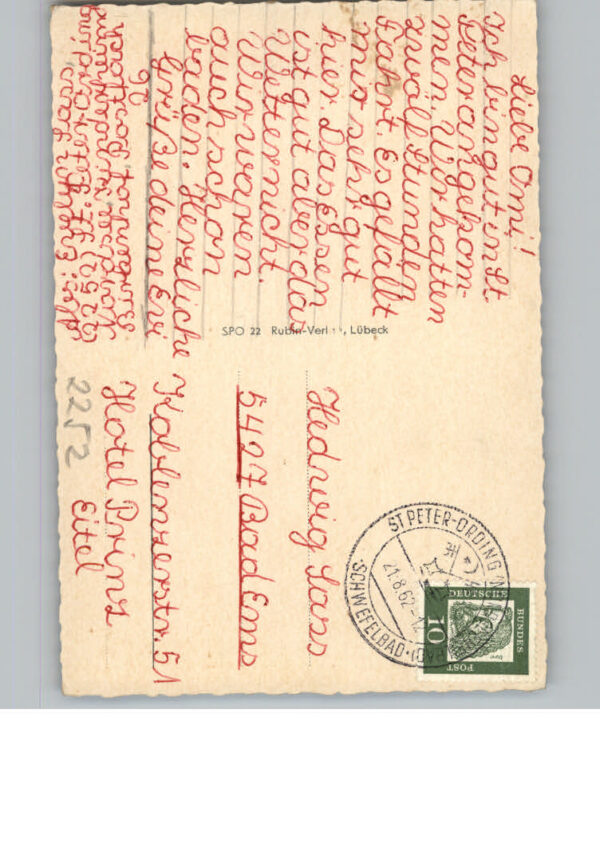 Liebe Omi!
Ich bin gut in St.
Peter angekom-
men. Wir hatten
zwölf Stunden
Fahrt. Es gefällt
mir sehr gut
hier. Das Essen
ist gut aber das
Wetter nicht.
Wir waren
auch schon
baden. Herzliche
Grüße deine Evi
SPO 22 Rubin-Verl , Lübeck
ST PETER-ORDING
21.8.62
SCHWEFELBAD
DEUTSCHE
BUNDES
POST
10
Hedwig Lass
5427 Bad Ems
Koblenzerstr. 51
Hotel Prinz
Eitel
2252